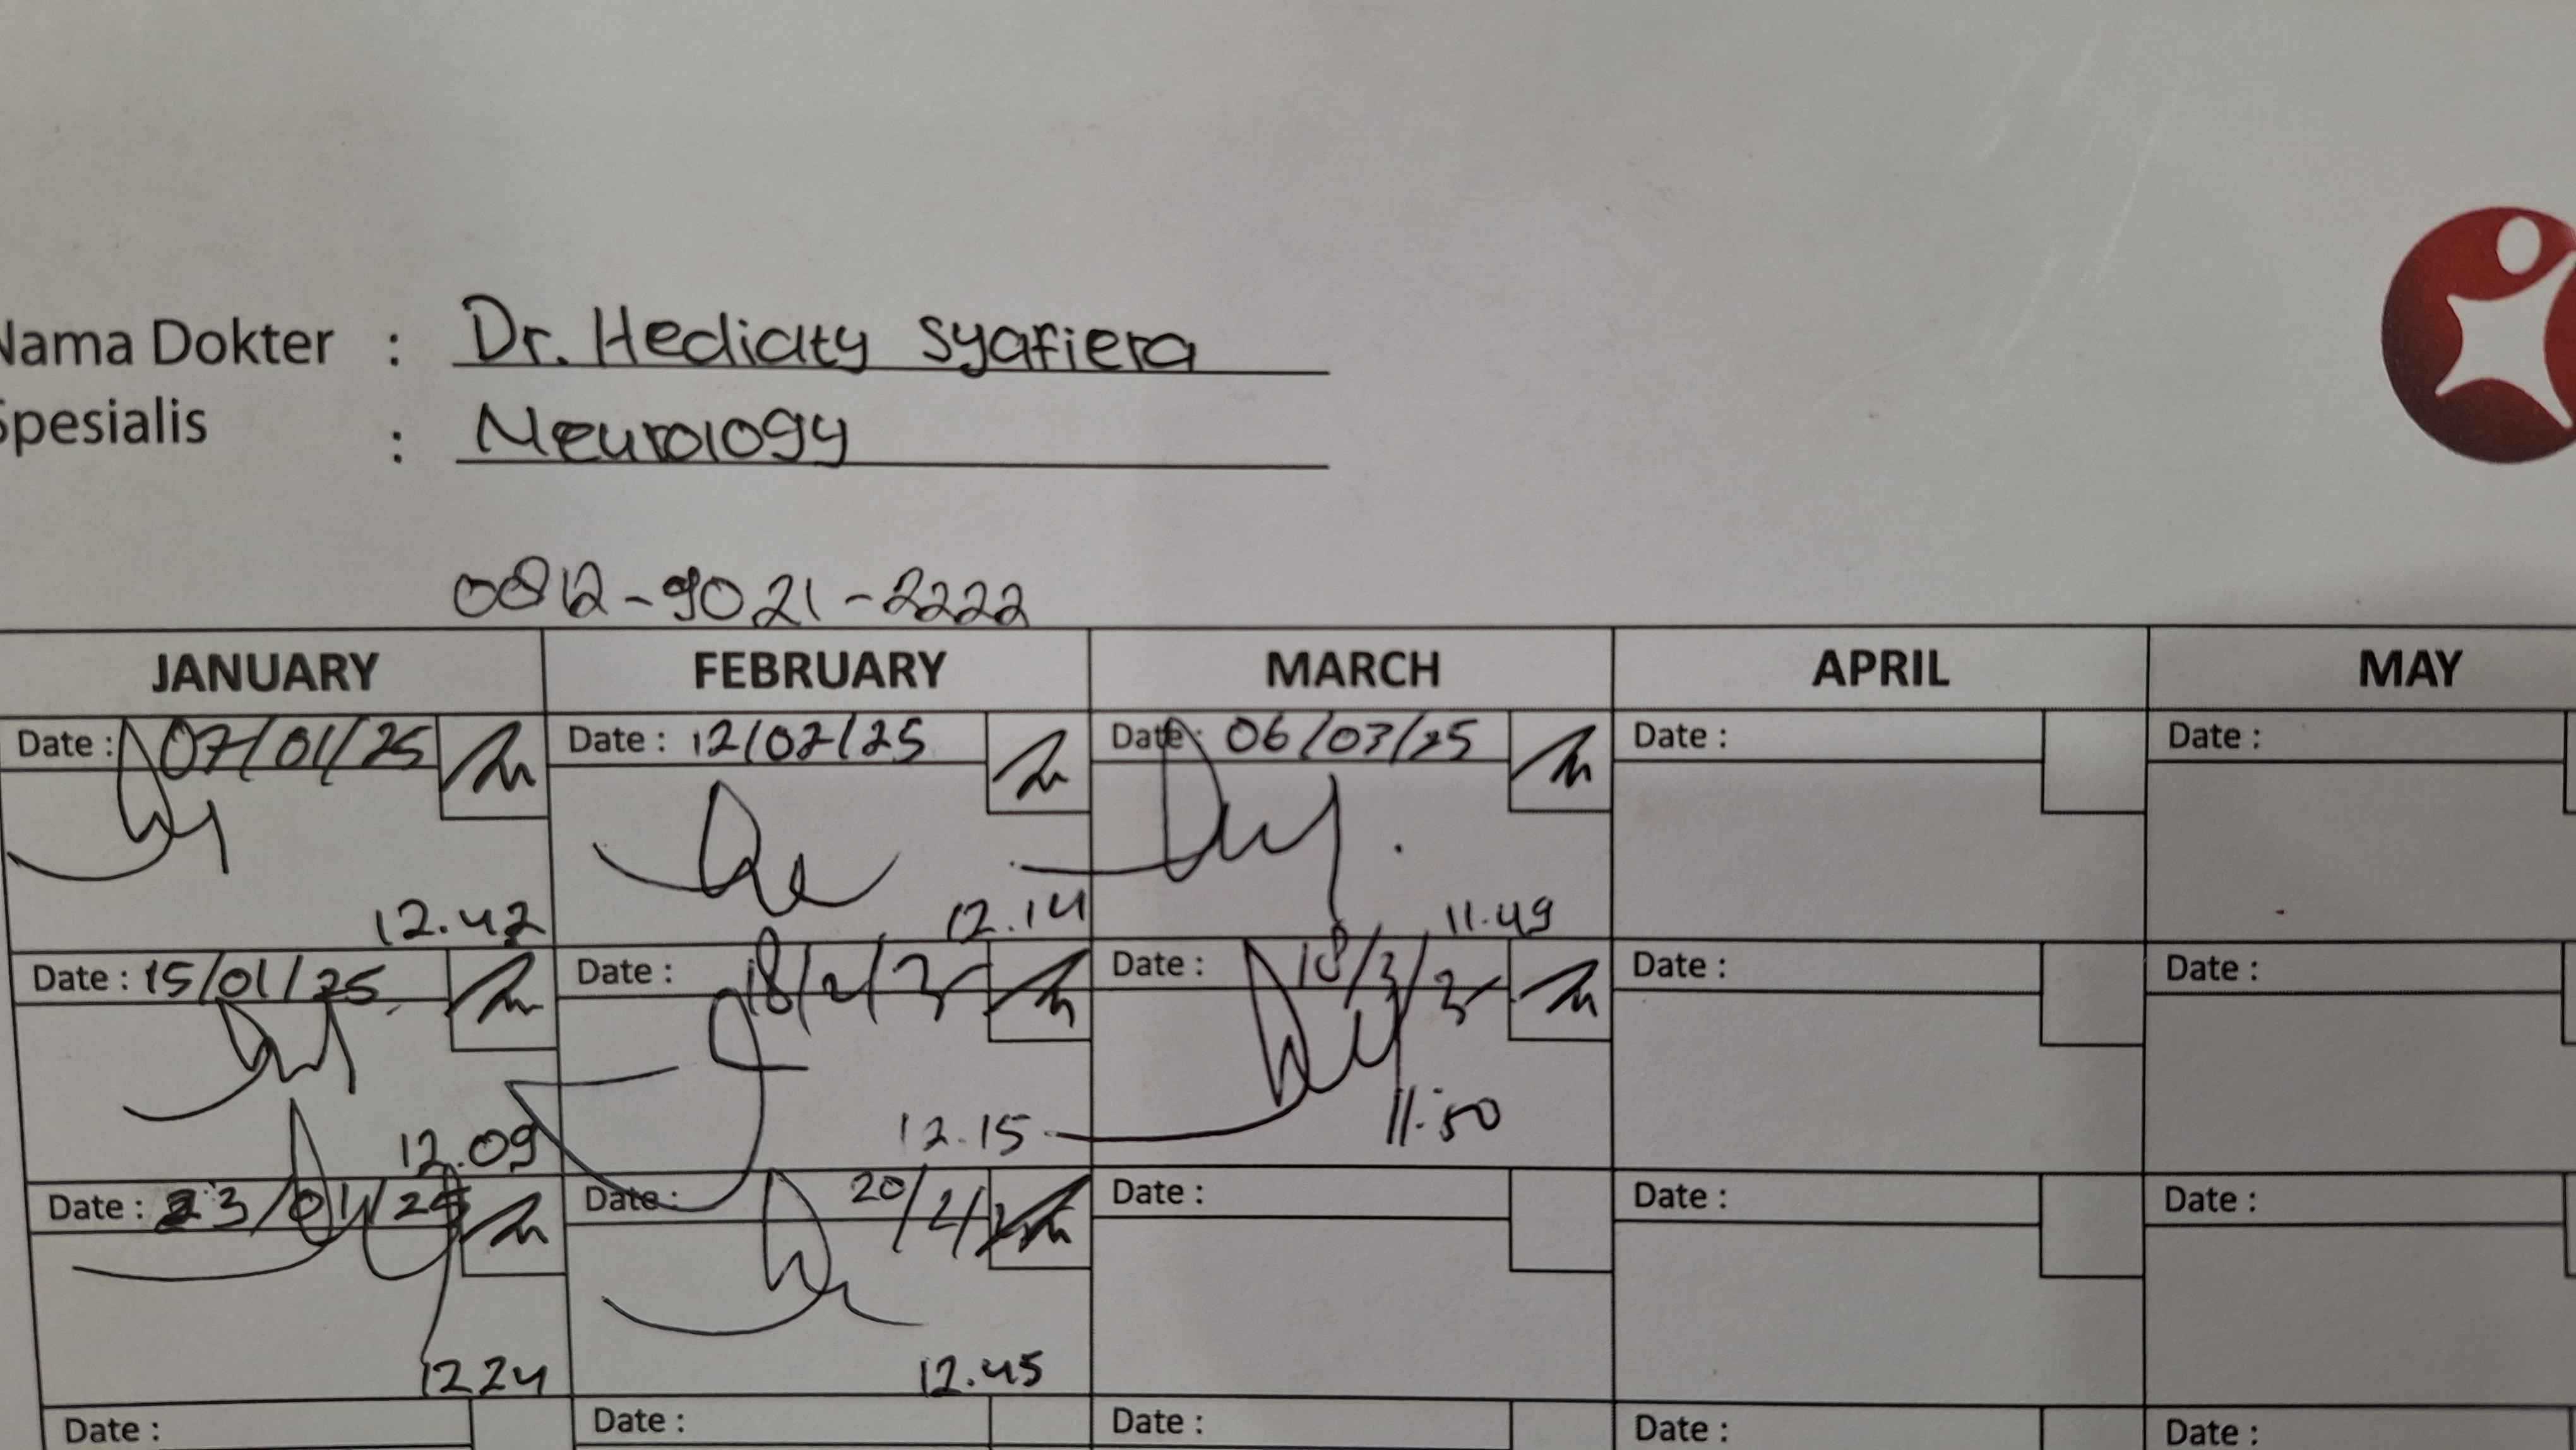 Nama Dokter : Dr. Hediaty Syafiera
Spesialis : Neurology
0812-9021-2222
JANUARY FEBRUARY MARCH APRIL MAY
Date : 07/01/25 Date : 12/02/25 Date : 06/03/25 Date : Date :
12.42 12.14 11.49
Date : 15/01/25 Date : 18/2/25 Date : 18/3/25 Date : Date :
12.09 12.15 11.50
Date : 23/01/25 Date : 20/2/ Date : Date : Date :
12 24 12.45
Date : Date : Date : Date : Date :